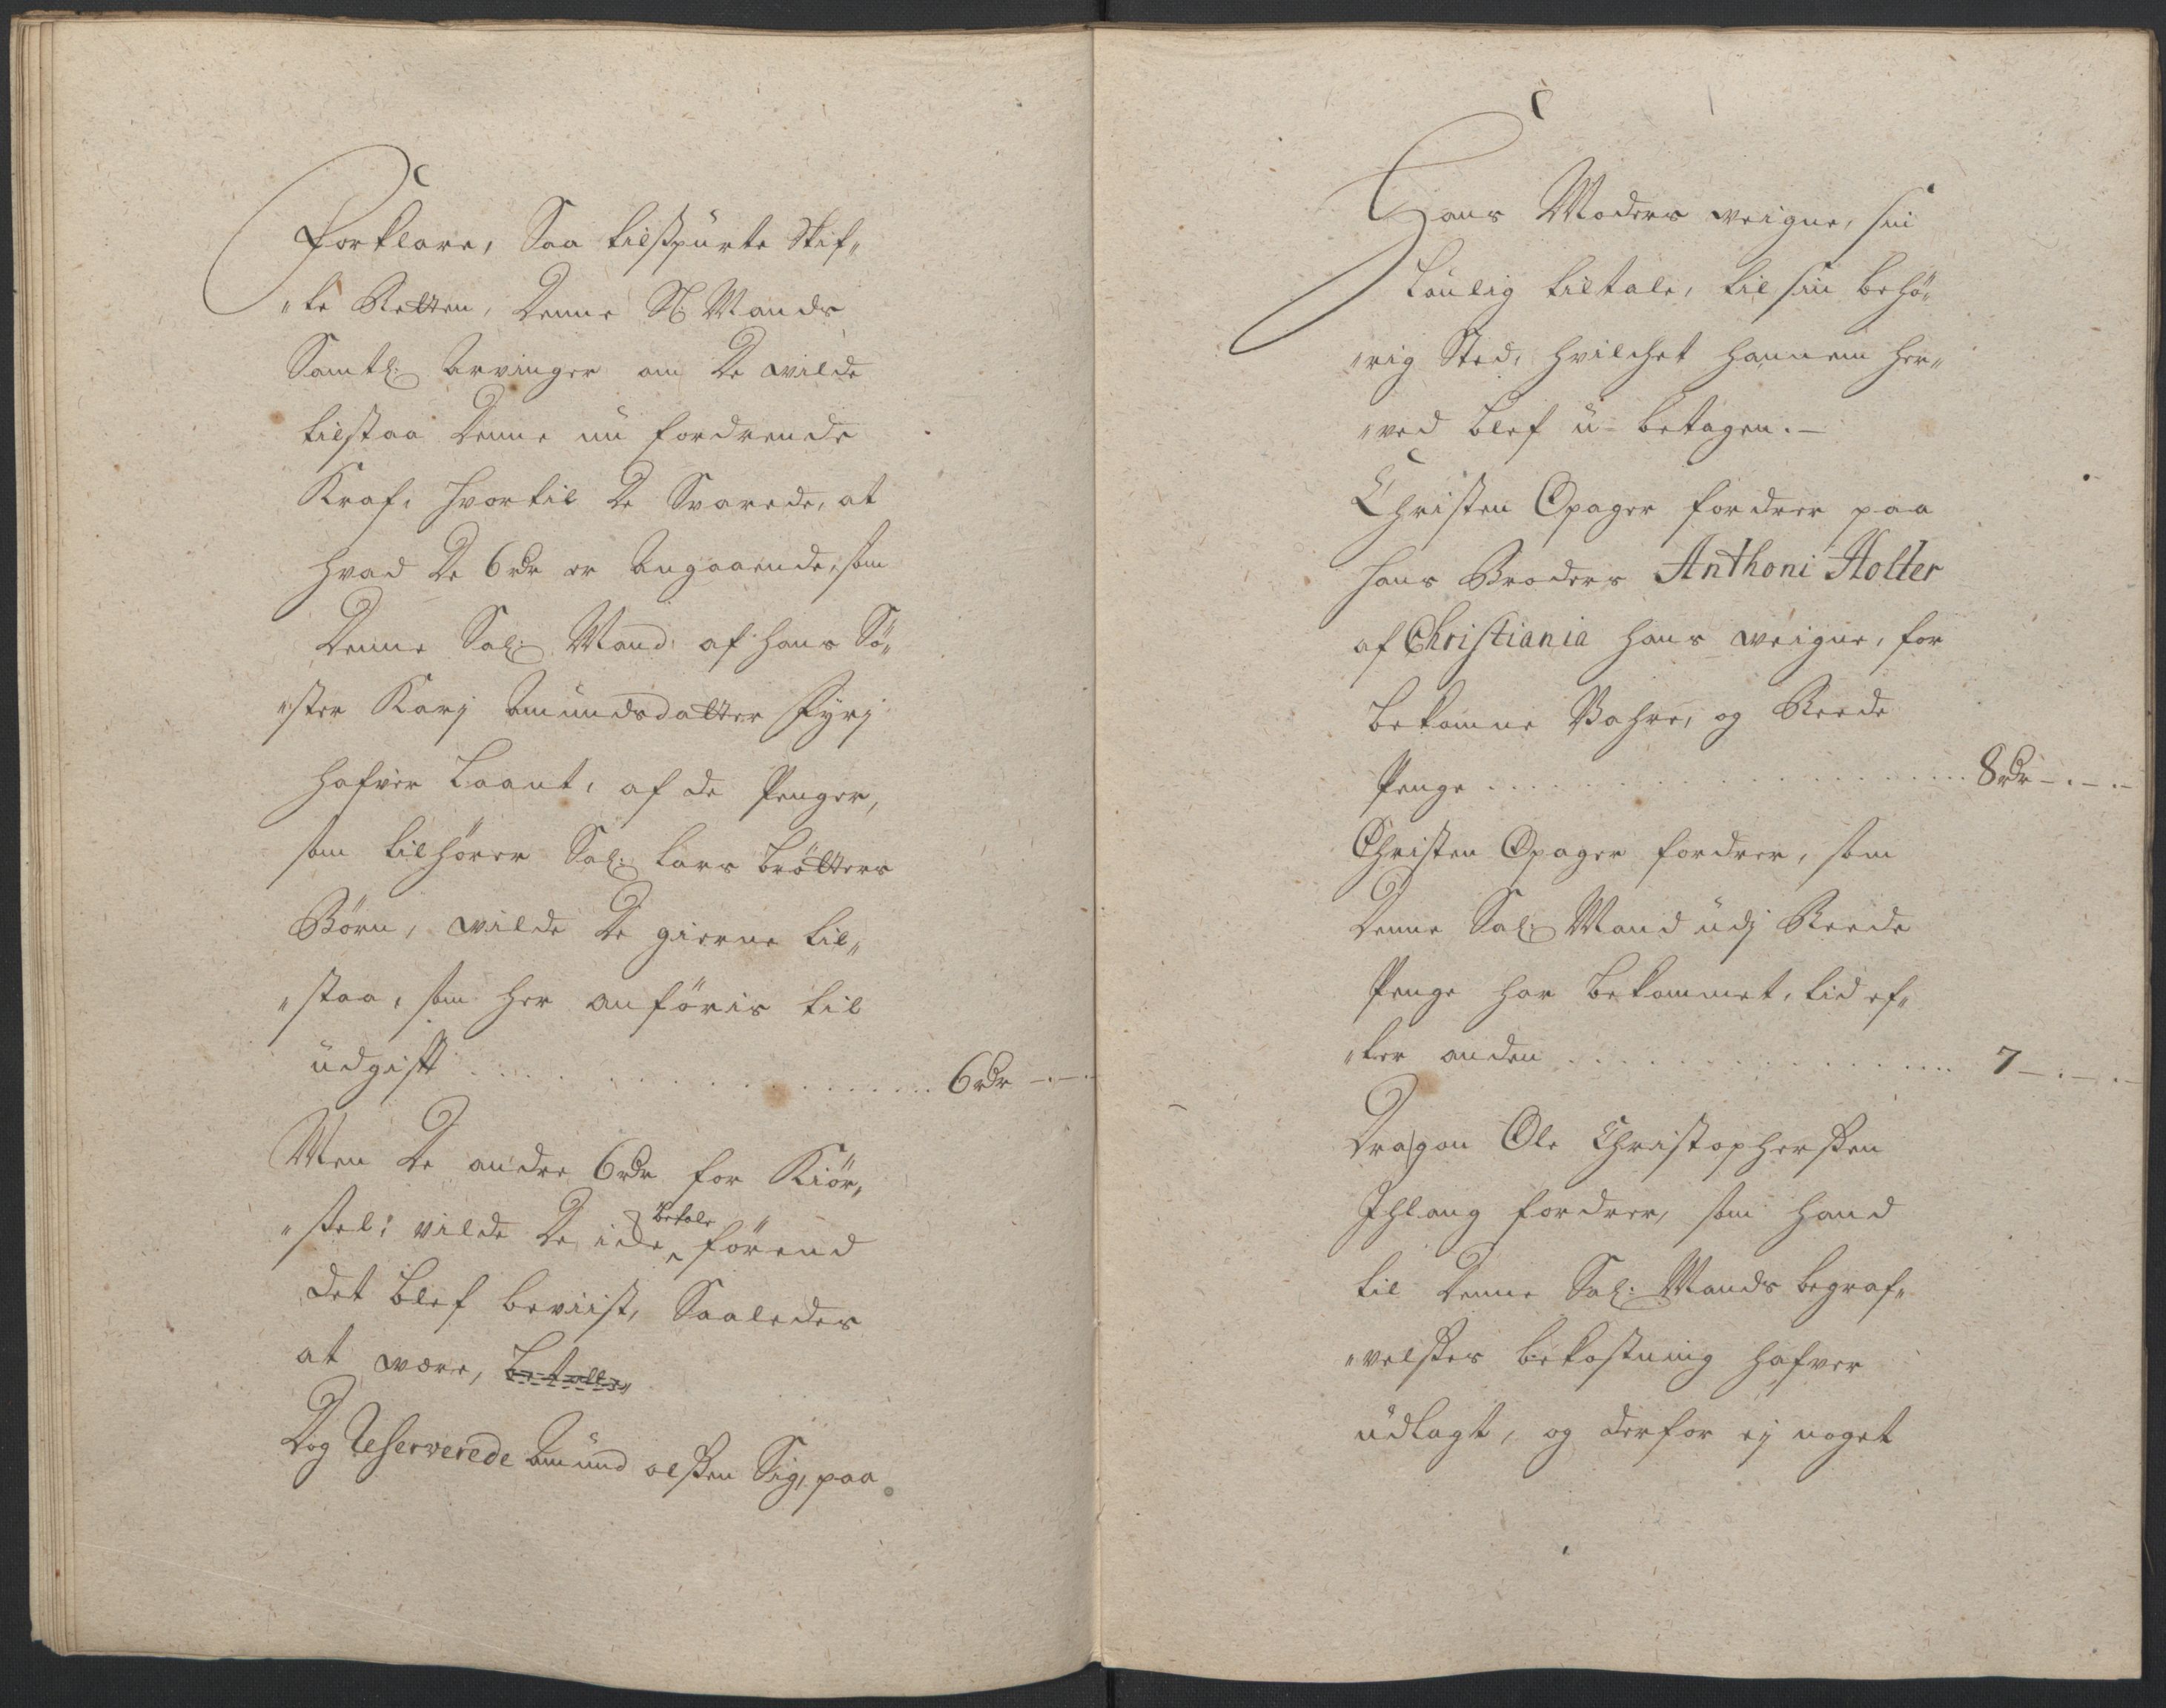 Forklare, Saa tilspurte Skif„
„te Retten, denne Sl: Mands
Samtl: Arvinger om De wilde
tilstaa denne nu fordrende
Kraf, hvortil De Svarede, at
hvad De 6 rdr er Angaaende, som
denne Sal: Mand af hans Sö„
„ster Karj Amundsdatter Fyrj
hafver Laant, af de Penger,
som tilhörer Sal: Lars Brötters
Börn, wilde De gierne til„
„staa, som her anföris til
udgift . . . . . . 6 rdr -.-.-
Men De andre 6 rdr for Kiör„
„sel: vilde De icke betale förend
det blef beviist, Saaledes
at være, betalle
Dog Reserverede Amund olssen Sig, paa
Hans Moders weigne, sin
Laulig tiltale, til sin behö„
„rig Sted, hvilchet hannem her„
„ved blef u-betagen.-
Christen Opager fordrer paa
hans Broders Anthoni Holter
af Christiania hans weigne, for
bekomne Vahre, og Reede
Penge . . . . . . 8 rdr -.-.-
Christen Opager fordrer, som
denne Sal: Mand udj Reede
Penge har bekommet, tid ef„
„ter anden . . . . . . 7 -.-.-
Dragon Ole Christopherssen
Ihlang fordrer, som hand
til denne Sal: Mands begraf„
„velsses bekostning hafver
udlagt, og derfor ej noget